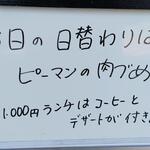 日の日替わりは
ピーマンの肉づめ
1.000円ランチはコーヒーと
デザートが付き